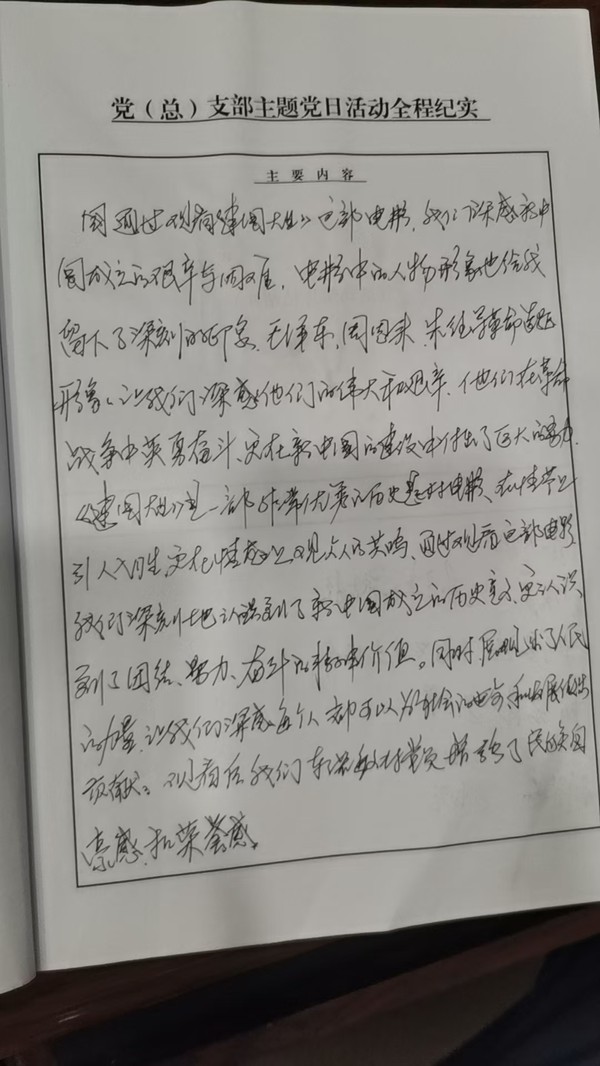 党（总）支部主题党日活动全程纪实
主要内容
通过观看《建国大业》这部电影，我们深感新中
国成立的艰辛与困难，电影中的人物形象也给我
留下了深刻的印象，毛泽东，周恩来，朱德等革命
形象，让我们深感他们的伟大和艰辛，他们在革命
战争中英勇奋斗，更在新中国的建设中付出了巨大的努力，
《建国大业》是一部非常优秀的历史题材电影，在情节上
引人入胜，更在情感上观众人的共鸣，通过观看这部电影
我们深刻地认识到了新中国成立的历史意义，更认识
到了团结、努力、奋斗的精神价值。同时展现出了人民
的力量，让我们深感每个人都可以为社会的进步和发展做出
贡献。观看后我们党员增强了民族自
豪感和荣誉感。